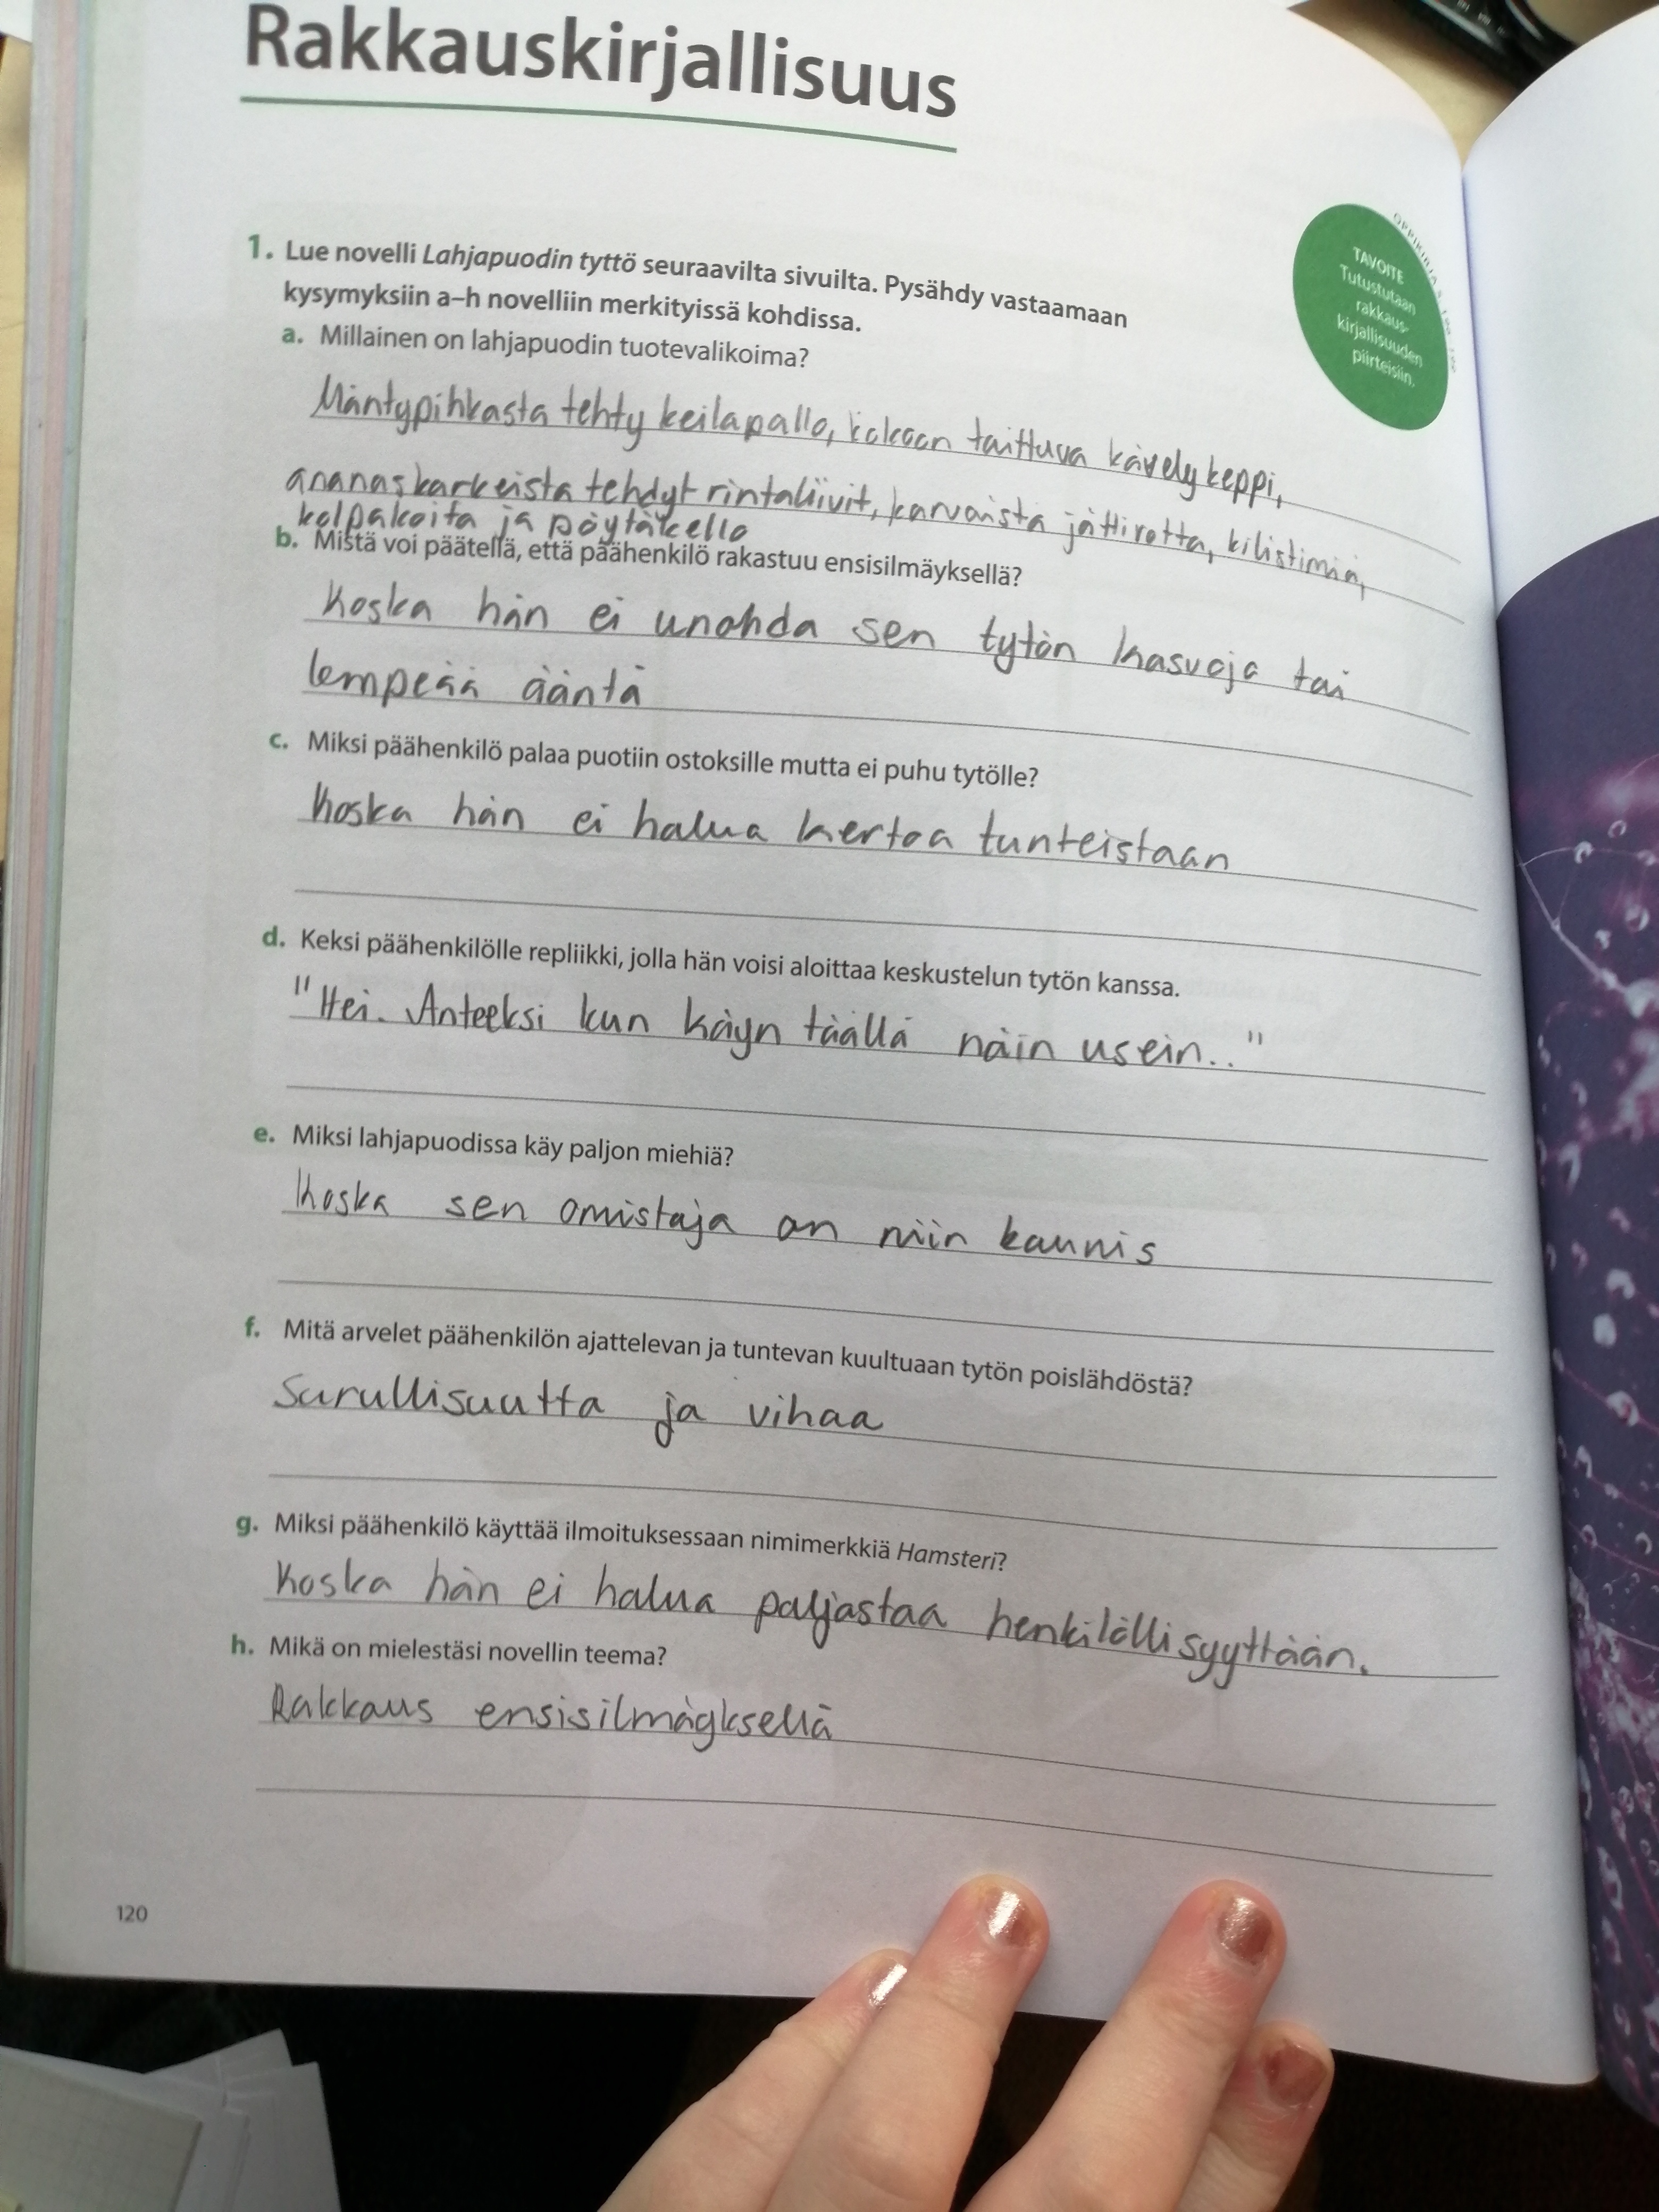 Rakkauskirjallisuus
TAVOITE
Tutustutaan
rakkaus-
kirjallisuuden
piirteisiin.
1. Lue novelli Lahjapuodin tyttö seuraavilta sivuilta. Pysähdy vastaamaan
kysymyksiin a–h novelliin merkityissä kohdissa.
a. Millainen on lahjapuodin tuotevalikoima?
Mäntypihkasta tehty keilapallo, kokoon taittuva kävelykeppi,
ananaskarkeista tehdyt rintaliivit, karvaista jättirotta, kilistimiä,
kolpakoita ja pöytäkello
b. Mistä voi päätellä, että päähenkilö rakastuu ensisilmäyksellä?
Koska hän ei unohda sen tytön kasvoja tai
lempeää ääntä
c. Miksi päähenkilö palaa puotiin ostoksille mutta ei puhu tytölle?
Koska hän ei halua kertoa tunteistaan
d. Keksi päähenkilölle repliikki, jolla hän voisi aloittaa keskustelun tytön kanssa.
"Hei. Anteeksi kun käyn täällä näin usein.."
e. Miksi lahjapuodissa käy paljon miehiä?
Koska sen omistaja on niin kaunis
f. Mitä arvelet päähenkilön ajattelevan ja tuntevan kuultuaan tytön poislähdöstä?
Surullisuutta ja vihaa
g. Miksi päähenkilö käyttää ilmoituksessaan nimimerkkiä Hamsteri?
Koska hän ei halua paljastaa henkilöllisyyttään.
h. Mikä on mielestäsi novellin teema?
Rakkaus ensisilmäyksellä
120